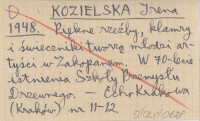 KOZIELSKA Irena
1948. Piękne rzeźby, klamry
i świeczniki tworzą młodzi ar-
tyści w Zakopanem. W 70-lecie
istnienia Szkoły Przemysłu
Drzewnego. - Echo Krakowa
(Kraków) nr 11-12.